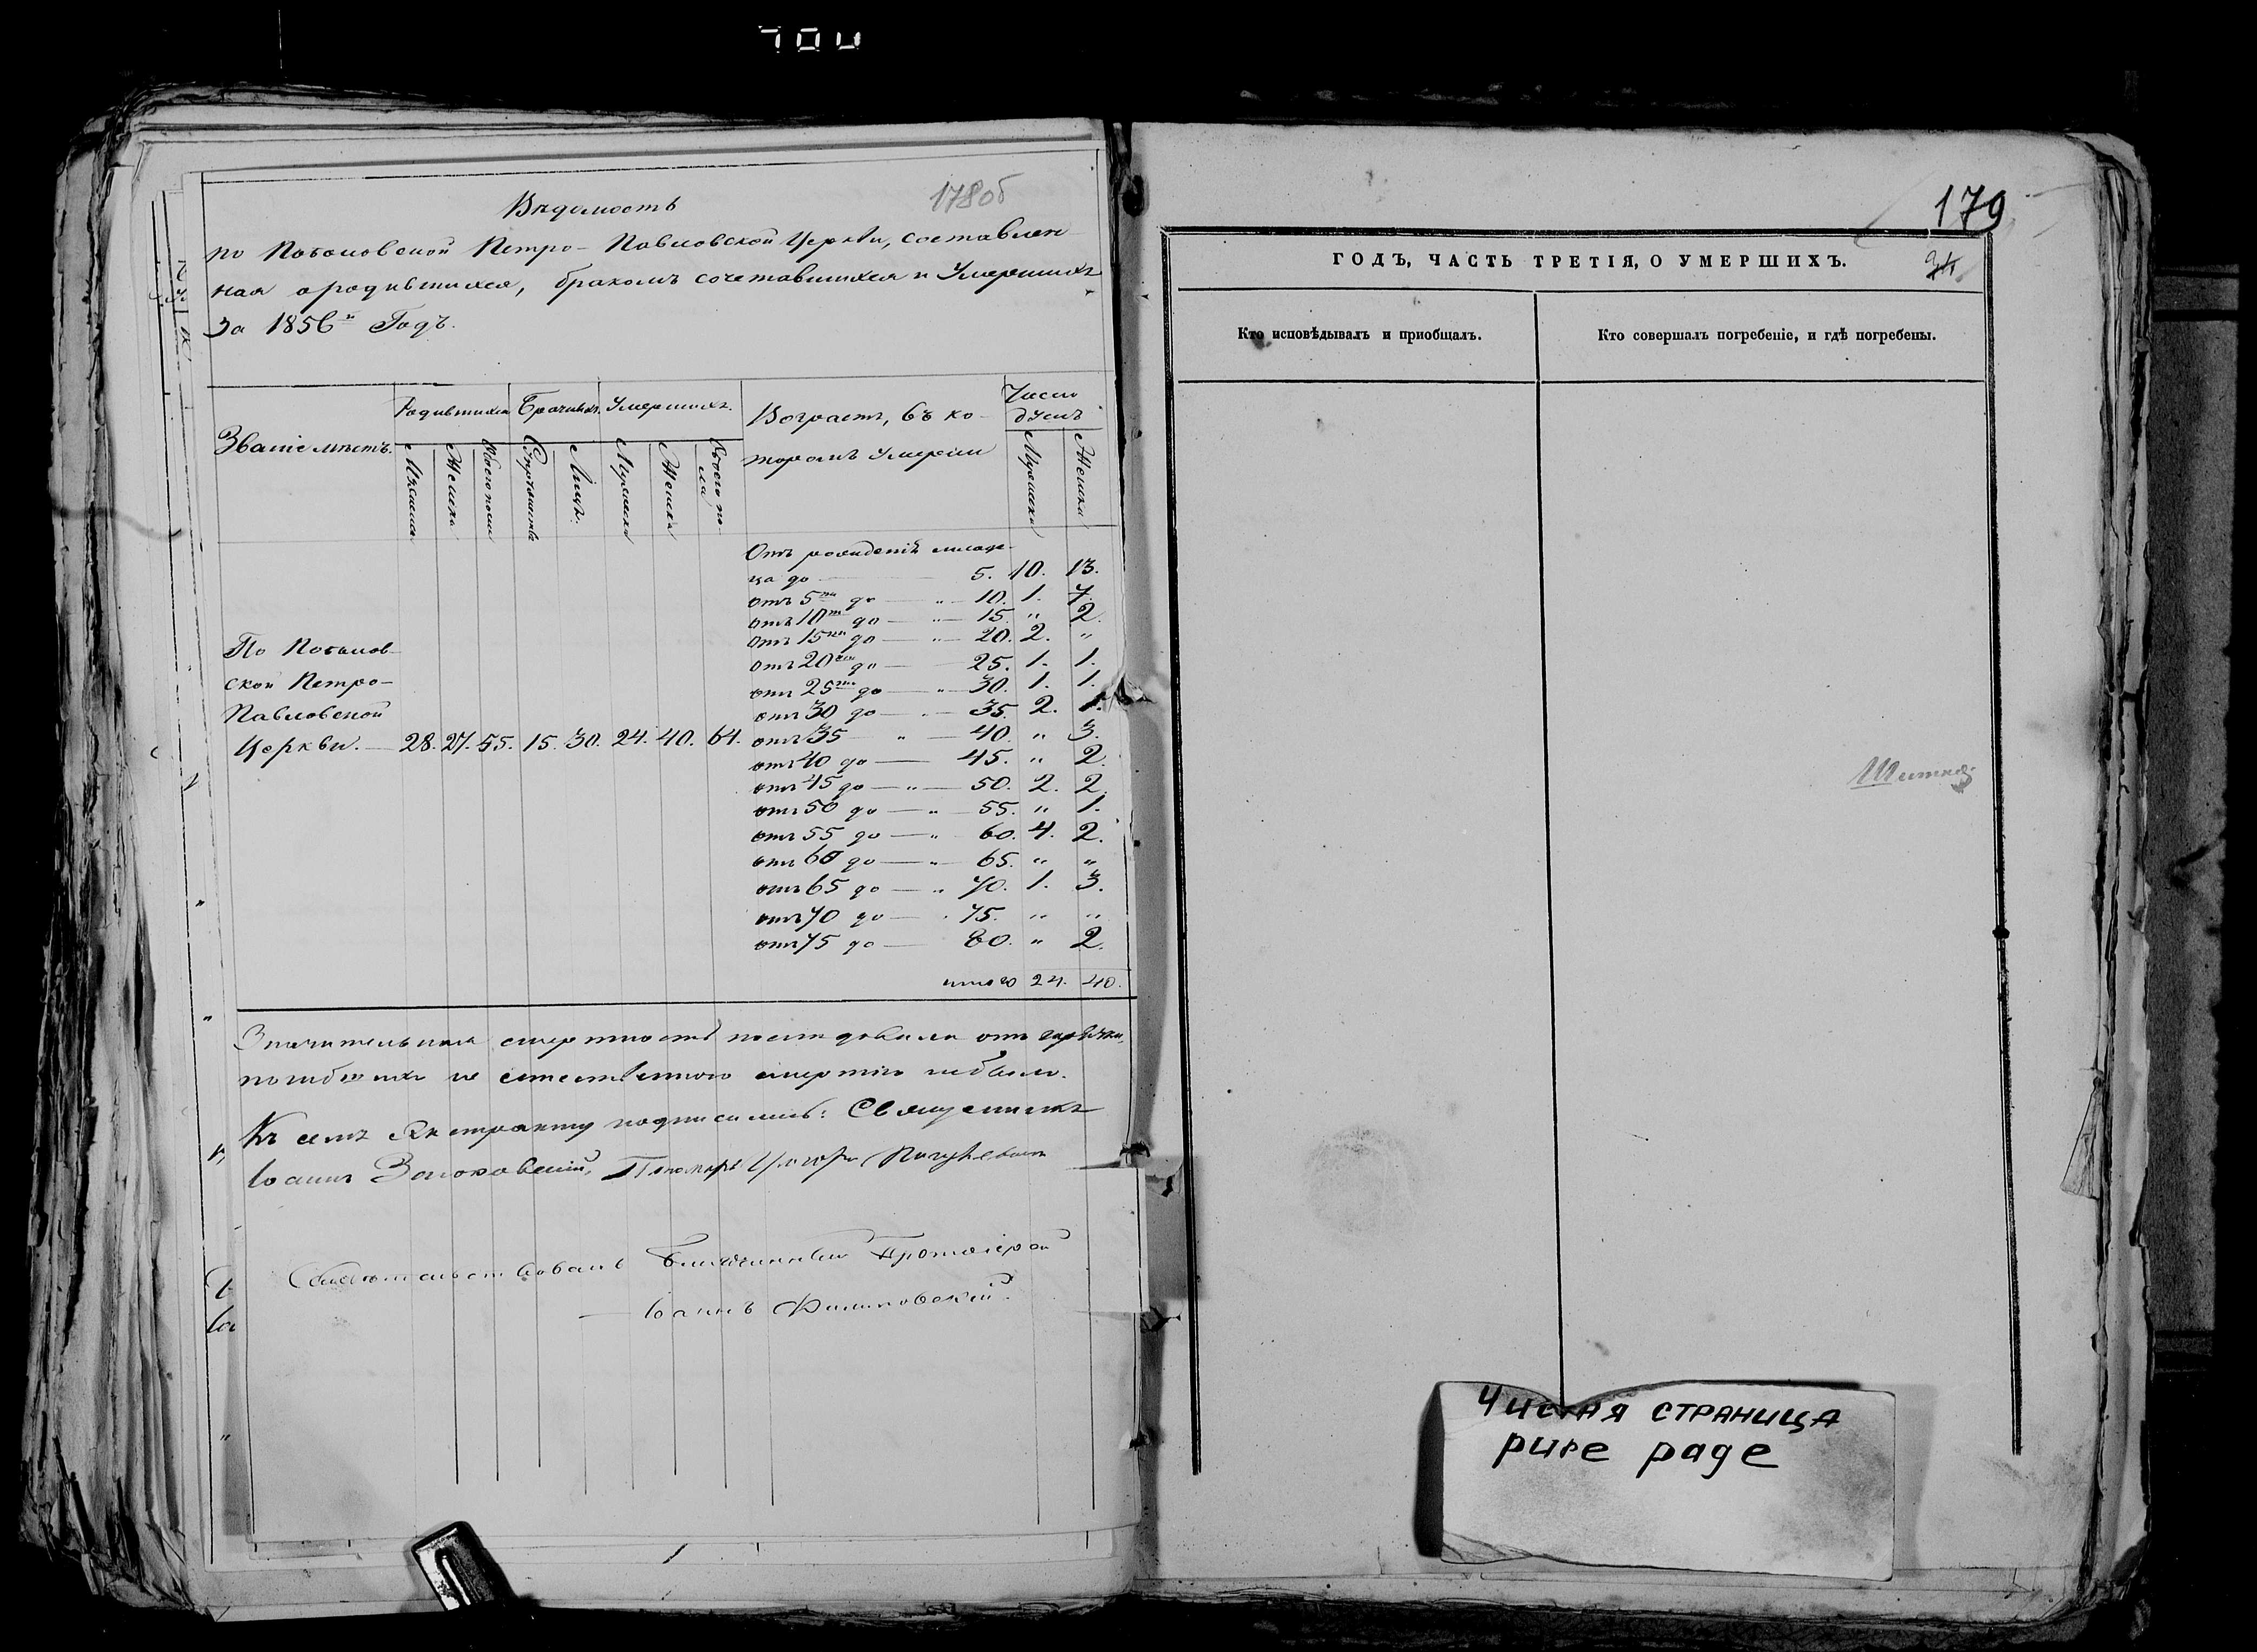 178об
Вѣдомость
по Петро-Павловской Церкви, составлен
ная о родившихся, бракомъ сочетавшихся и Умершихъ
За 1856й Годъ.
Званіе мѣстъ.
Родившихся
Брачныхъ
Умершихъ.
Возрастъ, въ ко-
торомъ Умерли
Число
душъ
Мужеска
Женска
Обоего пола
Супружествъ
Лицъ.
Мужеска
Женска
Обоего по-
ла
Мужеска
Женска
Отъ рожденія младе-
ца до 5. 10. 13.
отъ 5ти до „ 10. 1. 7.
отъ 10ти до „ 15. „ 2.
отъ 15ти до „ 20. 2. „
отъ 20ти до 25. 1. 1.
отъ 25ти до „ 30. 1. 1.
отъ 30 до „ 35. 2. 1.
отъ 35 „ 40. „ 3.
отъ 40 до 45. „ 2.
отъ 45 до „ 50. 2. 2.
отъ 50 до „ 55. „ 1.
отъ 55 до „ 60. 4. 2.
отъ 60 до „ 65. „ „
отъ 65 до „ 70. 1. 3.
отъ 70 до 75. „ „
отъ 75 до 80. „ 2.
итого 24. 40.
По
ской Петро-
Павловской
Церкви. 28. 27. 55. 15. 30. 24. 40. 64.
Значительная смертность отъ горячки,
не естественною смертію небыло.
Къ семъ Экстракту подписались: Священникъ
Іоаннъ Пономарь
Свидѣтельствовалъ Благочинный Протоіерей
Іоаннъ
179
ГОДЪ, ЧАСТЬ ТРЕТІЯ, О УМЕРШИХЪ.
Кто исповѣдывалъ и пріобщалъ.
Кто совершалъ погребеніе, и гдѣ погребены.
Чистая страница
pure page